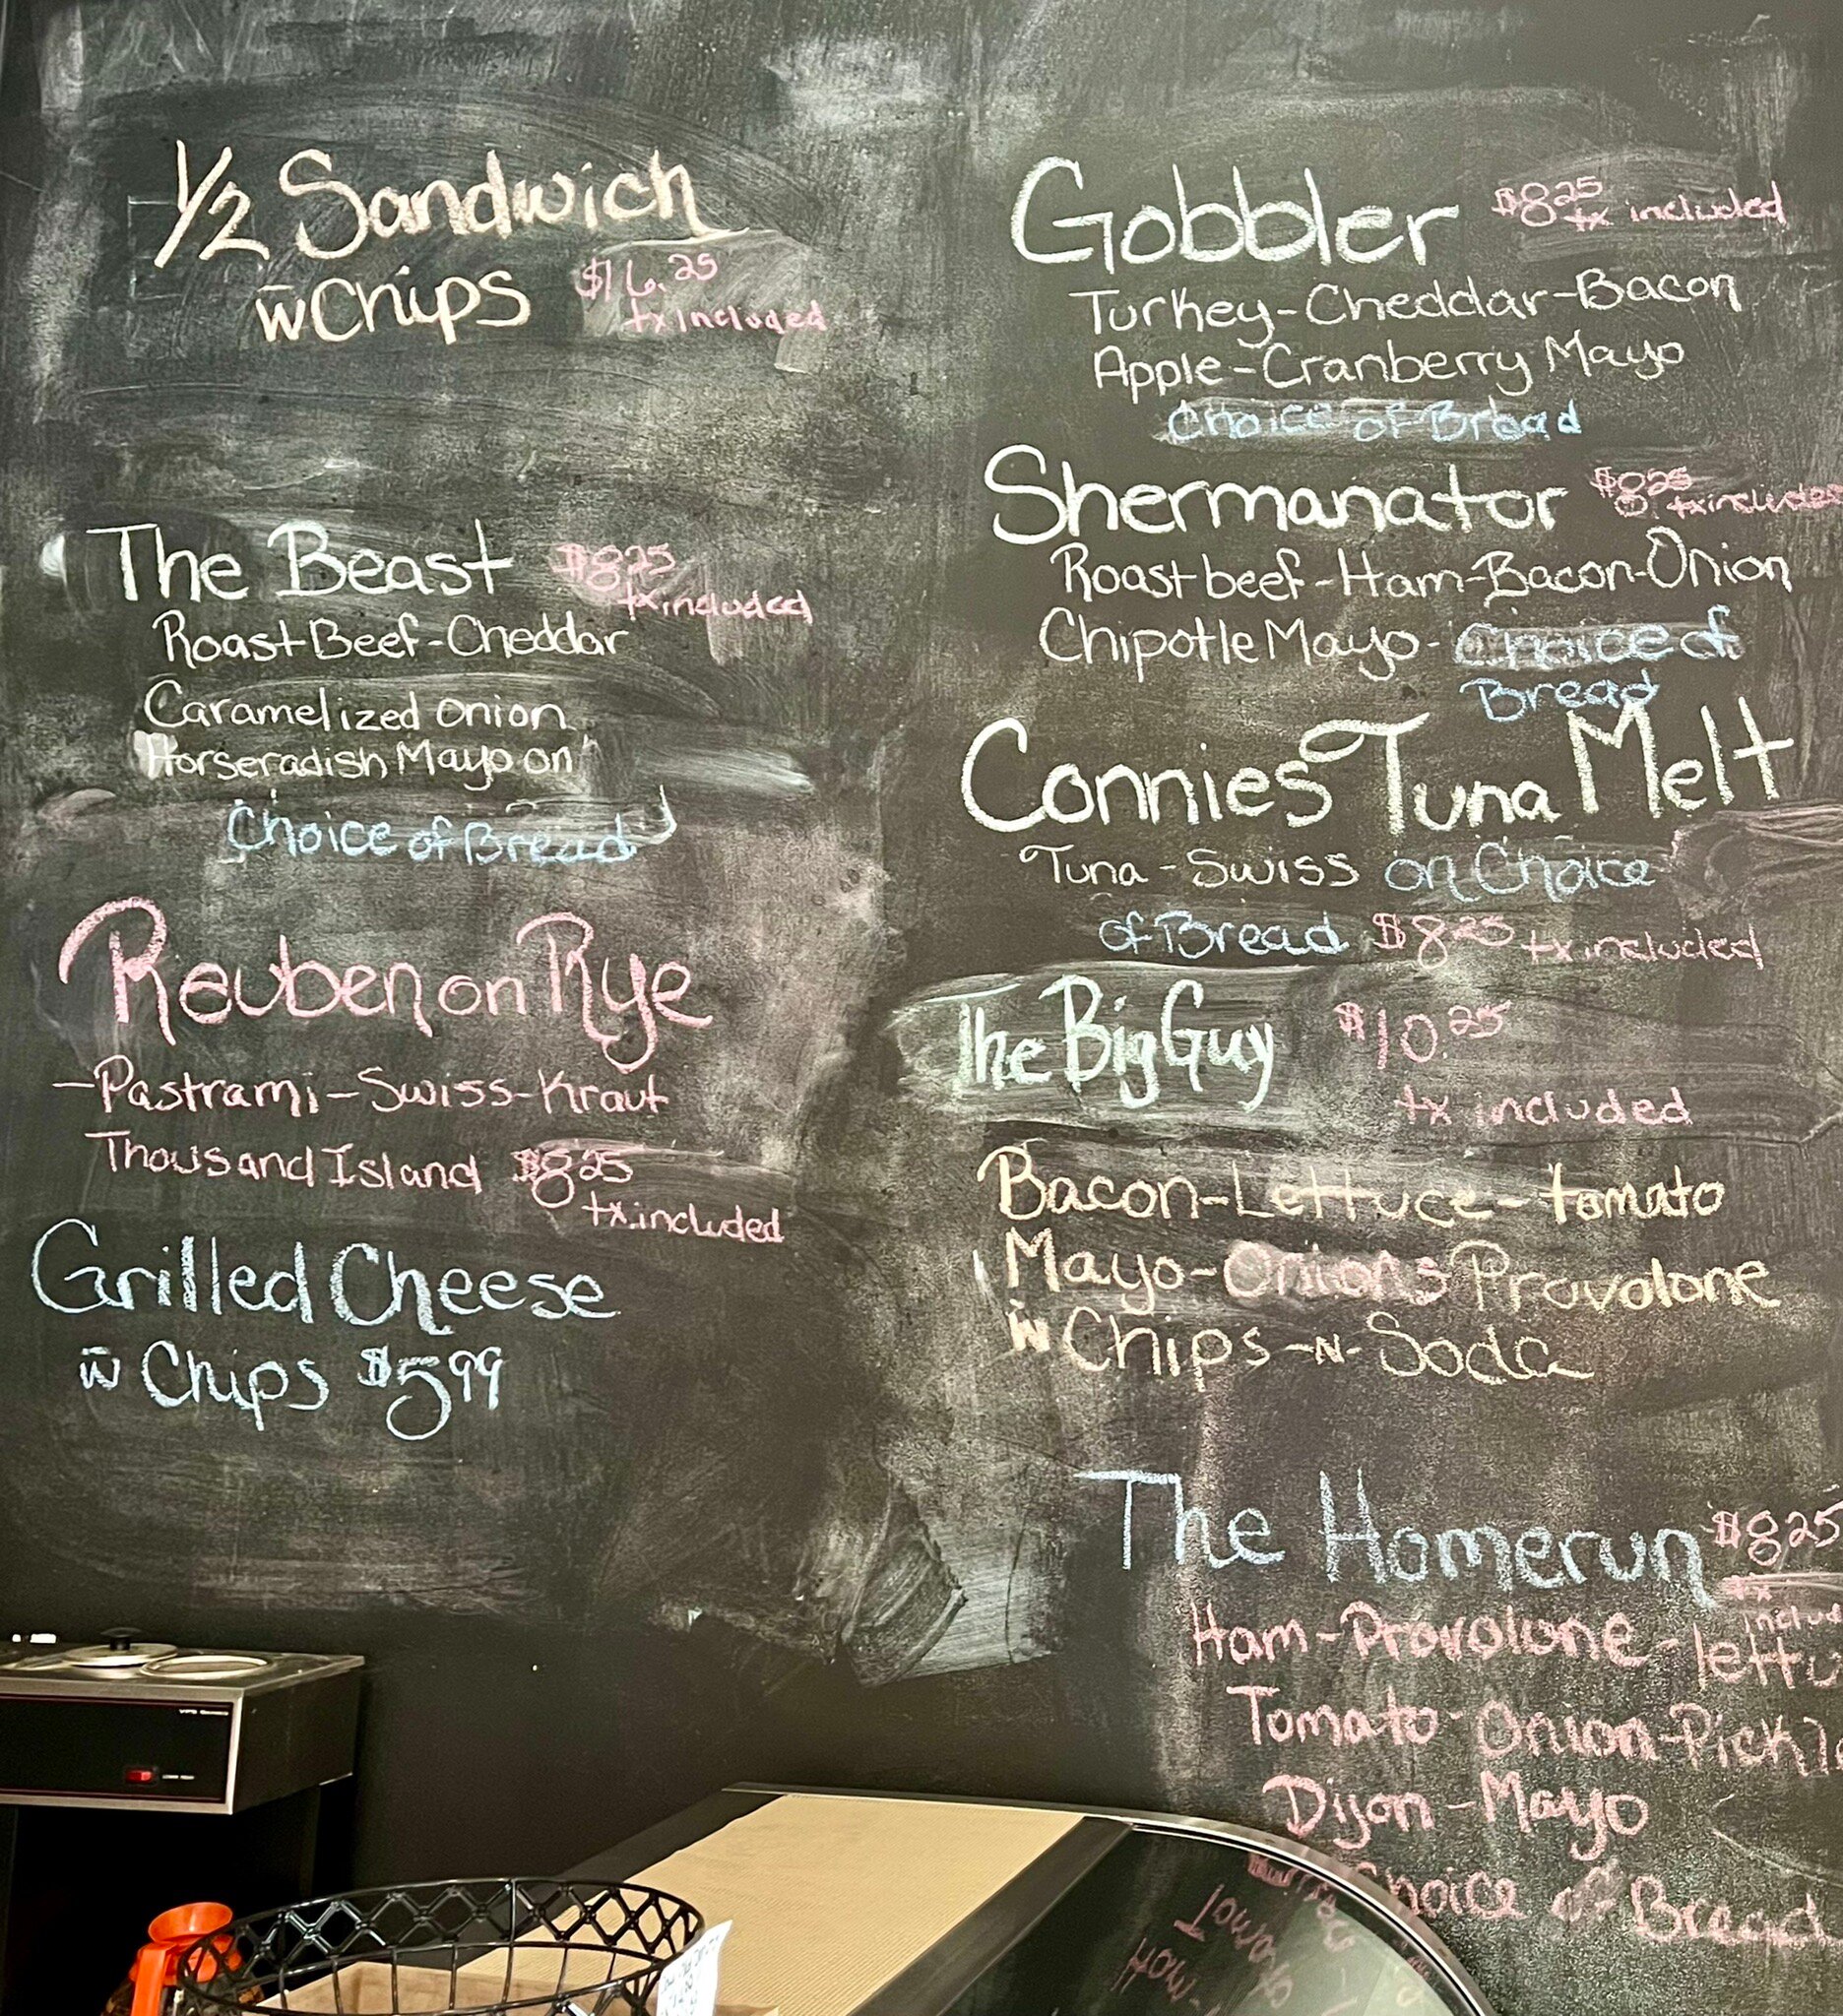 1/2 Sandwich
w Chips $6.25
tx included
The Beast $8.25
tx included
Roast Beef-Cheddar
Caramelized Onion
Horseradish Mayo on
Choice of Bread
Reuben on Rye
-Pastrami-Swiss-Kraut
Thousand Island $8.25
tx.included
Grilled Cheese
w Chips $5.99
Gobbler $8.25
tx included
Turkey-Cheddar-Bacon
Apple-Cranberry Mayo
Choice of Bread
Shermanator $8.25
tx included
Roastbeef-Ham-Bacon-Onion
Chipotle Mayo-Choice of
Bread
Connies Tuna Melt
Tuna-Swiss on Choice
of Bread $8.25 tx included
The Big Guy $10.25
tx included
Bacon-Lettuce-tomato
Mayo-Onions Provolone
w Chips-N-Soda
The Homerun $8.25
tx
includ
Ham-Provolone-lettu
Tomato-Onion-Pickl
Dijon-Mayo
hoice of Bread